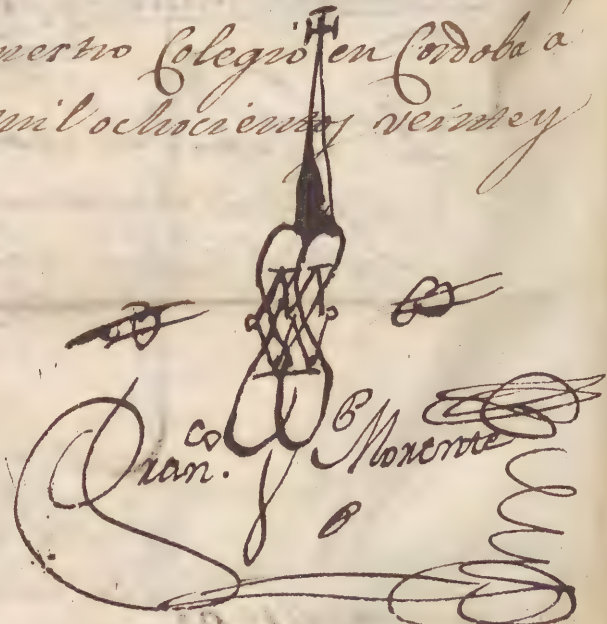 nuestro Colegio en Cordoba à
mil ochocientos veinte y
Fran.co Morente